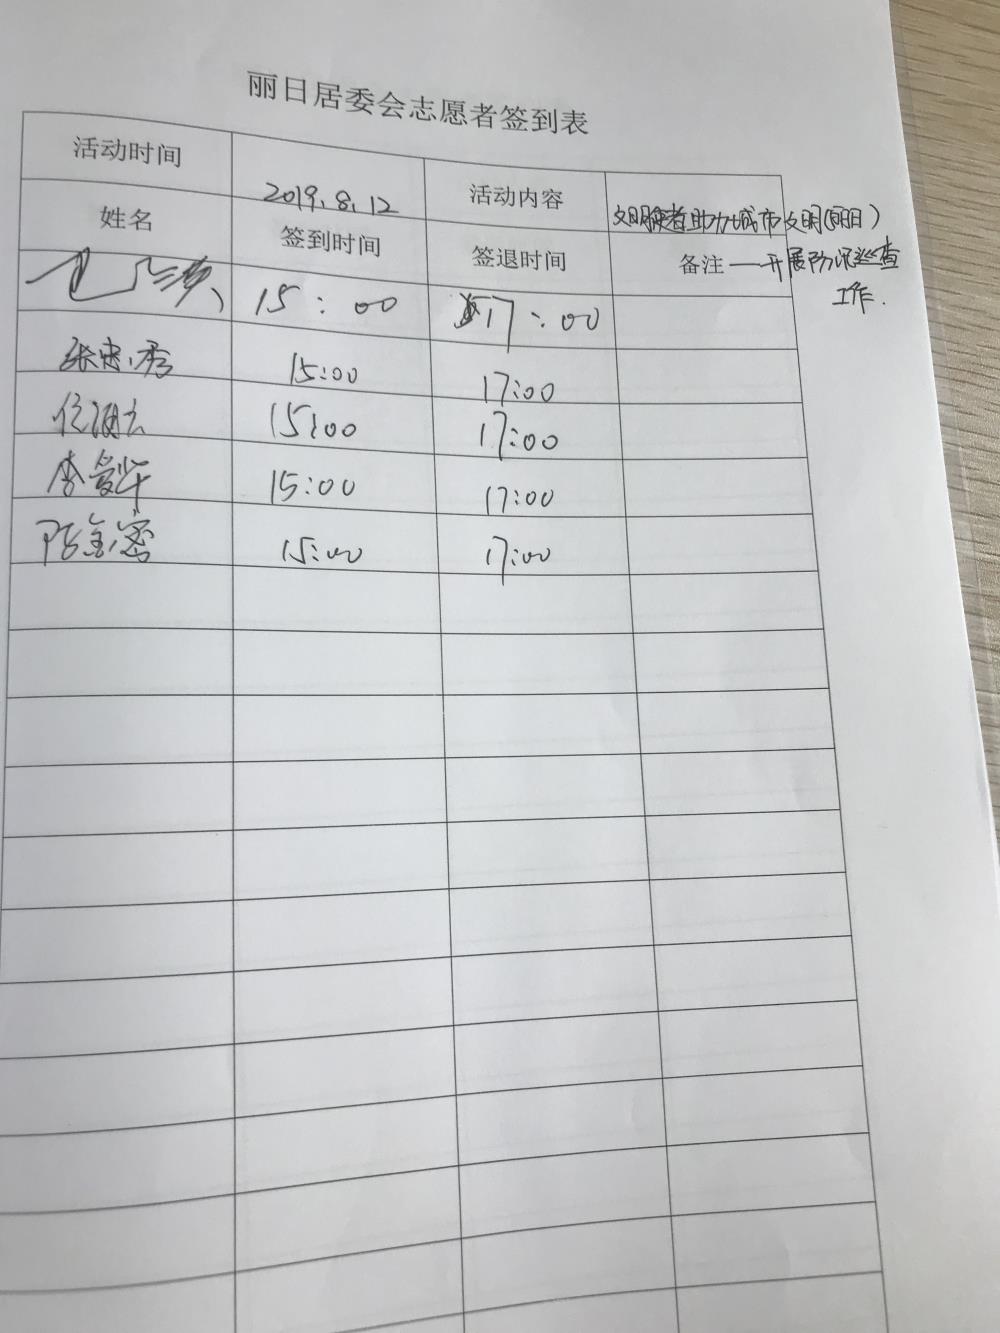 丽日居委会志愿者签到表
活动时间 2019.8.12 活动内容 文明使者助力城市文明(丽日)
姓名 签到时间 签退时间 备注 —开展防汛巡查
工作.
15:00 17:00
张忠秀 15:00 17:00
15:00 17:00
李爱华 15:00 17:00
15:00 17:00